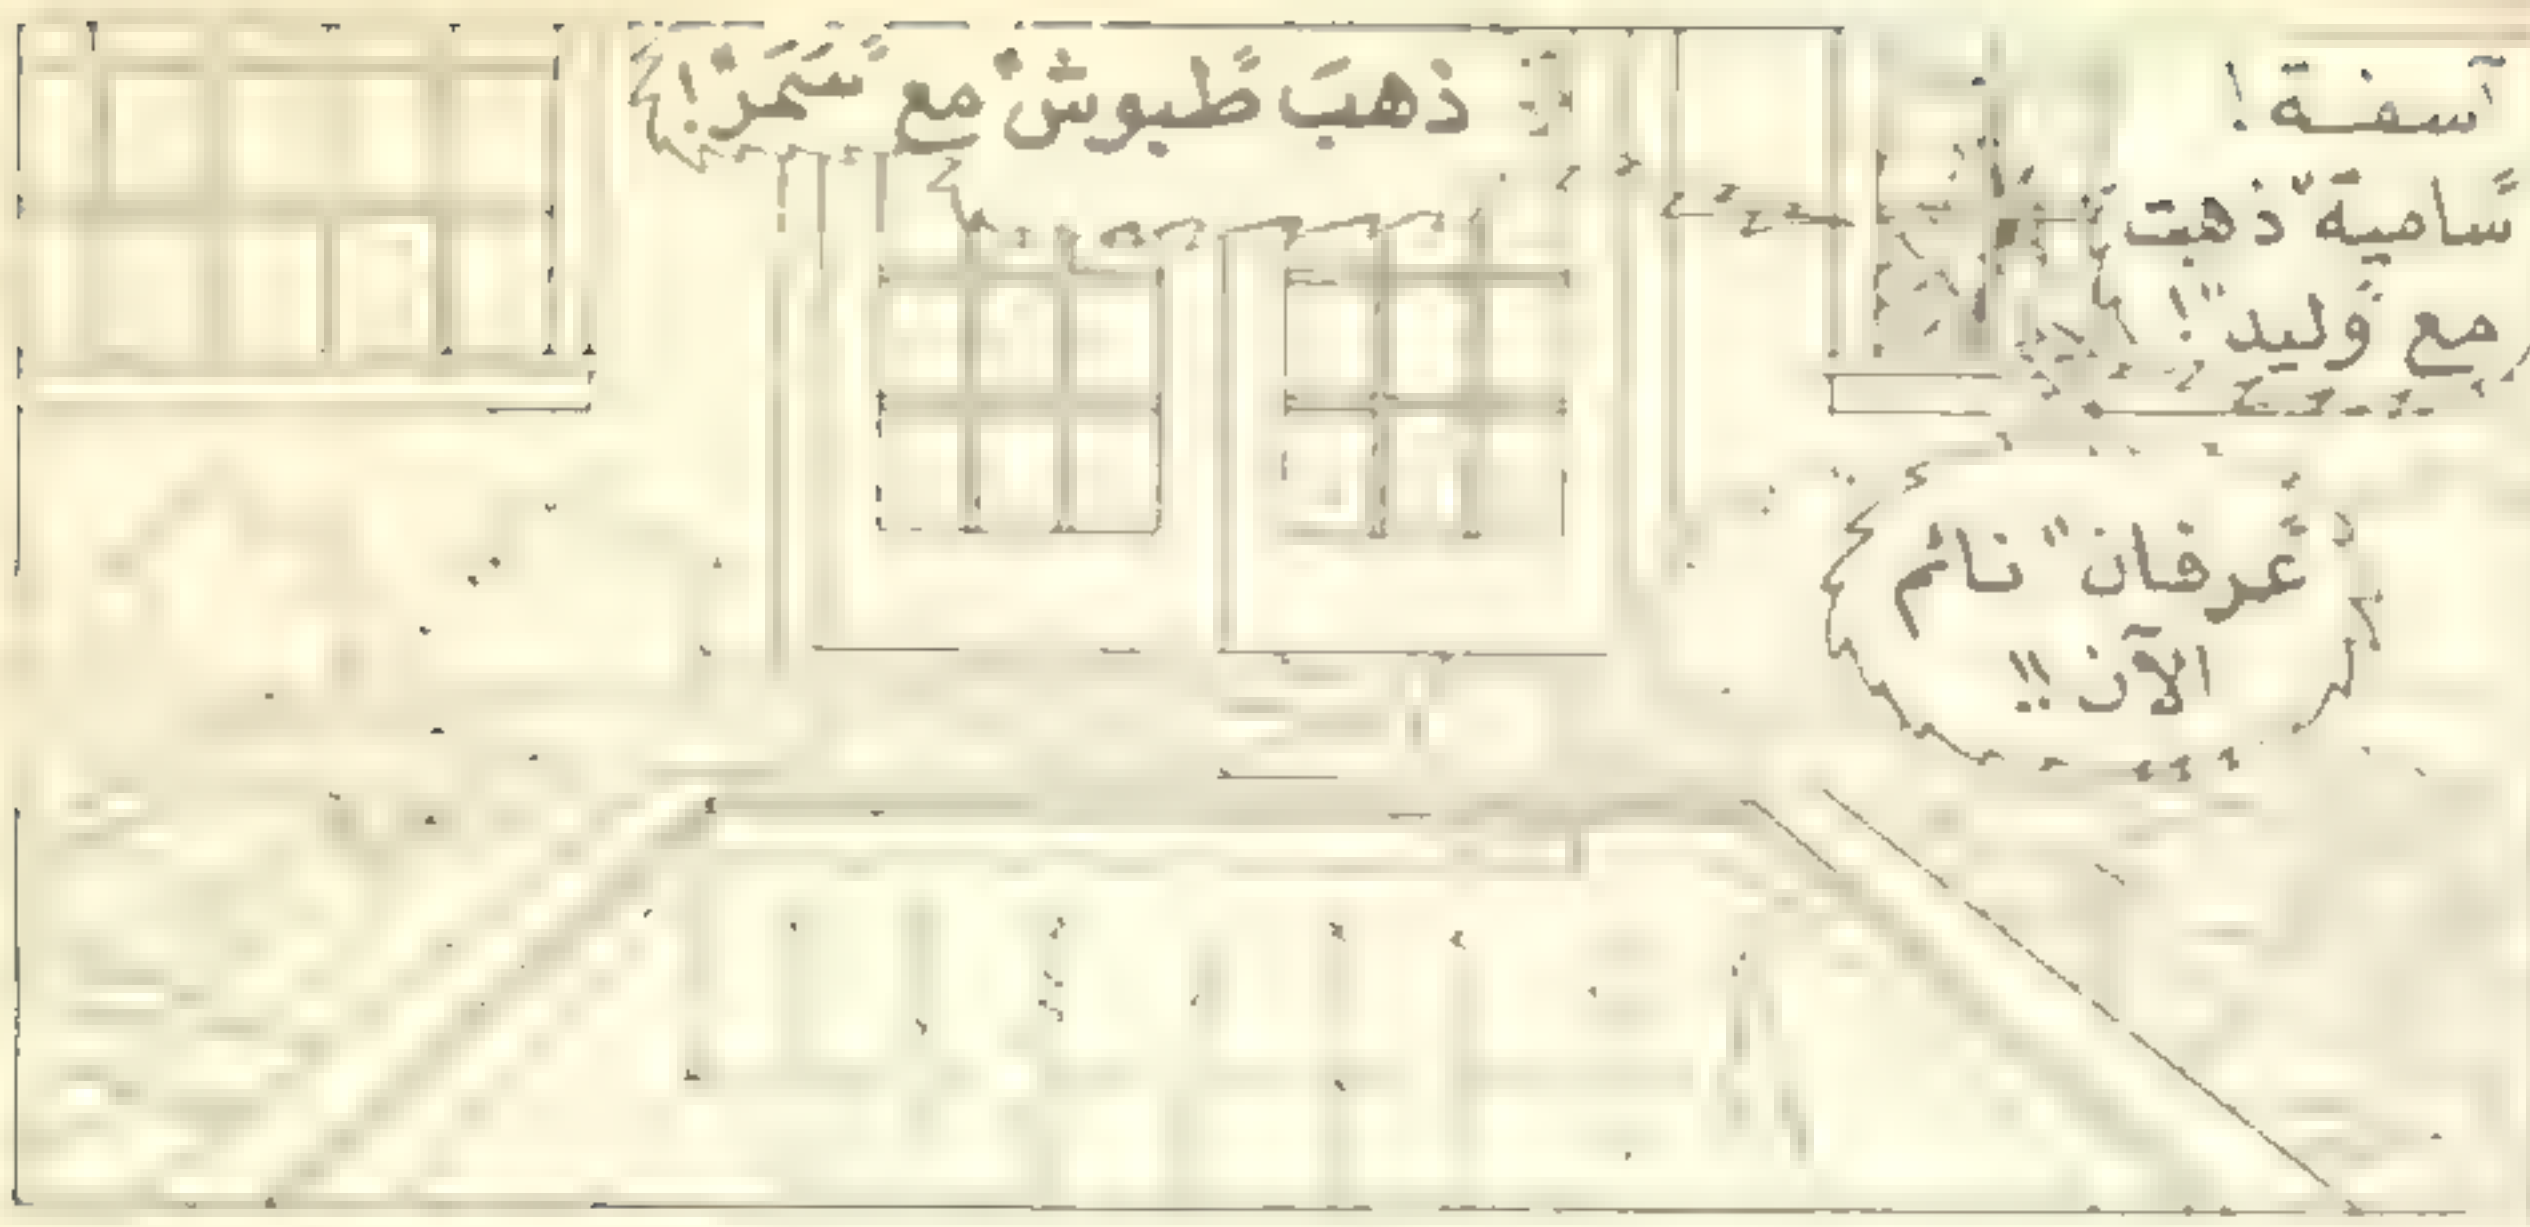 آسفة!
"سامية" ذهبت
مع "وليد"!
ذهبَ "طبوش" مع "سَمَر"!
"عرفان" نائم
الآن!!